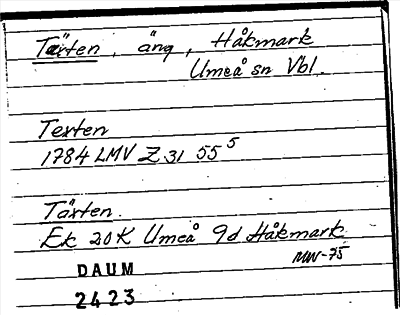 Täxten, äng, Håkmark
Umeå sn Vbl.
Texten
1784 LMV Z 31 55⁵
Täxten.
Ek 20K Umeå 9d Håkmark
MW-75
DAUM
2423